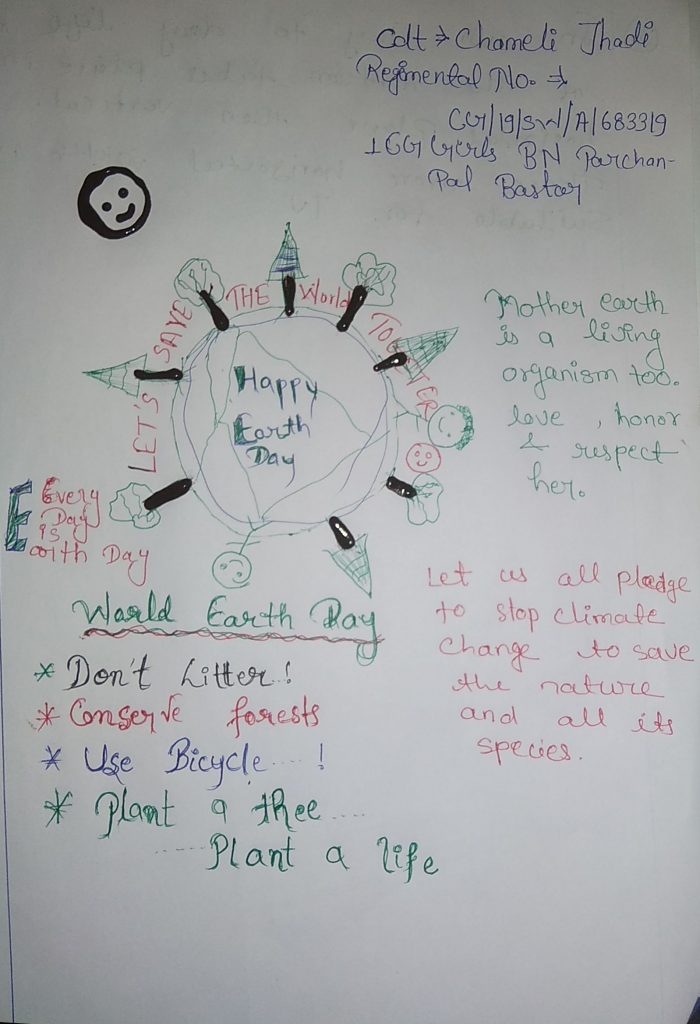 Cdt ⇒ Chameli Jhadi
Regimental No. ⇒
CG/19/SW/A/683319
1 CG Girls BN Parchan-
Pal Bastar
LET'S SAVE THE World TOGETHER
Happy
Earth
Day
Mother earth
is a living
organism too.
love , honor
& respect
her.
E Every
Day
is
Earth Day
World Earth Day
* Don't Litter..!
* Conserve forests
* Use Bicycle ....!
* Plant a thee ....
..... Plant a life
Let us all pledge
to stop climate
change to save
the nature
and all its
species.